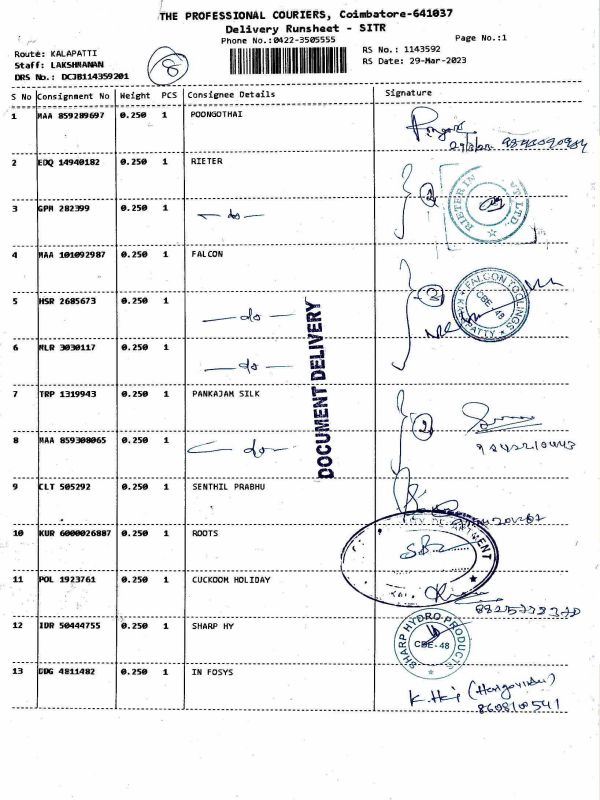 THE PROFESSIONAL COURIERS, Coimbatore-641037
Delivery Runsheet - SITR
Phone No.:0422-3505555
Page No.:1
Route: KALAPATTI
Staff: LAKSHMANAN
DRS No.: DCJB114359201
8
RS No.: 1143592
RS Date: 29-Mar-2023
S No Consignment No Weight PCS Consignee Details Signature
1 MAA 859289697 0.250 1 POONGOTHAI
2 EDQ 14940182 0.250 1 RIETER
2
RIETER IN VT LTD.
3 GPM 282399 0.250 1 do
4 MAA 101092987 0.250 1 FALCON
3
FALCON TOOLINGS
CBE - 48
KALAPATTY
5 HSR 2685673 0.250 1 do
6 MLR 3030117 0.250 1 do
DOCUMENT DELIVERY
7 TRP 1319943 0.250 1 PANKAJAM SILK
2
8 MAA 859308065 0.250 1 do
9 CLT 505292 0.250 1 SENTHIL PRABHU
10 KUR 6000026887 0.250 1 ROOTS
11 POL 1923761 0.250 1 CUCKOOM HOLIDAY
12 IDR 50444755 0.250 1 SHARP HY
SHARP HYDRO PRODUCTS
CBE-48
13 DDG 4811482 0.250 1 IN FOSYS
8608108541